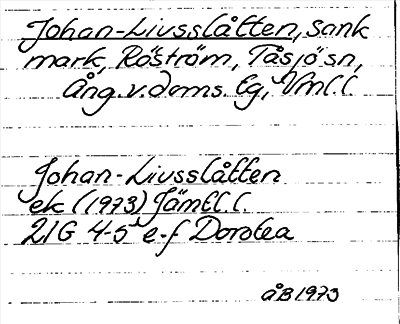 Johan-Liusslåtten, sank
mark, Röström, Tåsjö sn,
Ång.v.doms. Eg, Vml.l.
Johan-Liusslåtten
ek (1973) Jämtl.l.
21G 4-5 e-f Dorotea
ÅB 1973